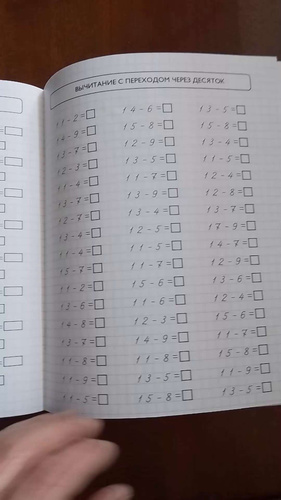 ВЫЧИТАНИЕ С ПЕРЕХОДОМ ЧЕРЕЗ ДЕСЯТОК
11-2=□ 14-6=□ 13-5=□
14-9=□ 15-8=□ 15-8=□
13-7=□ 12-9=□ 13-4=□
12-3=□ 13-5=□ 11-5=□
11-4=□ 11-7=□ 12-4=□
13-7=□ 13-9=□ 12-8=□
12-7=□ 13-4=□ 13-7=□
13-4=□ 12-5=□ 17-9=□
11-4=□ 11-5=□ 14-7=□
15-7=□ 11-7=□ 12-9=□
11-2=□ 15-6=□ 13-6=□
13-6=□ 11-6=□ 12-4=□
14-8=□ 12-3=□ 15-6=□
13-7=□ 14-9=□ 11-7=□
11-8=□ 11-8=□ 15-8=□
11-9=□ 13-5=□ 12-9=□
11-5=□ 15-8=□ 13-5=□